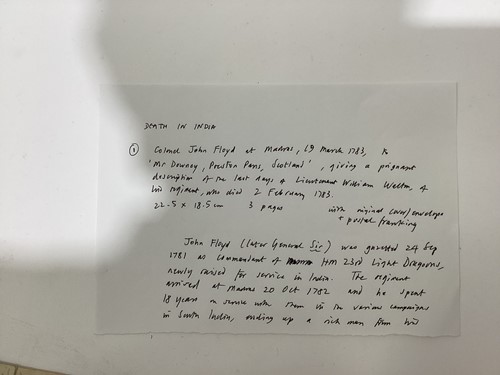 DEATH IN INDIA
① Colonel John Floyd at Madras, 19 March 1783, to
'Mr Downey, Preston Pans, Scotland', giving a poignant
description of the last days of Lieutenant William Walton, of
his regiment, who died 2 February 1783.
22.5 x 18.5 cm 3 pages with original cover/envelope
+ postal franking
John Floyd (later General Sir) was gazetted 24 Sep
1781 as commandant of HM 23rd Light Dragoons,
newly raised for service in India. The regiment
arrived at Madras 20 Oct 1782 and he spent
18 years in service with them in the various campaigns
in South India, ending up a rich man from his